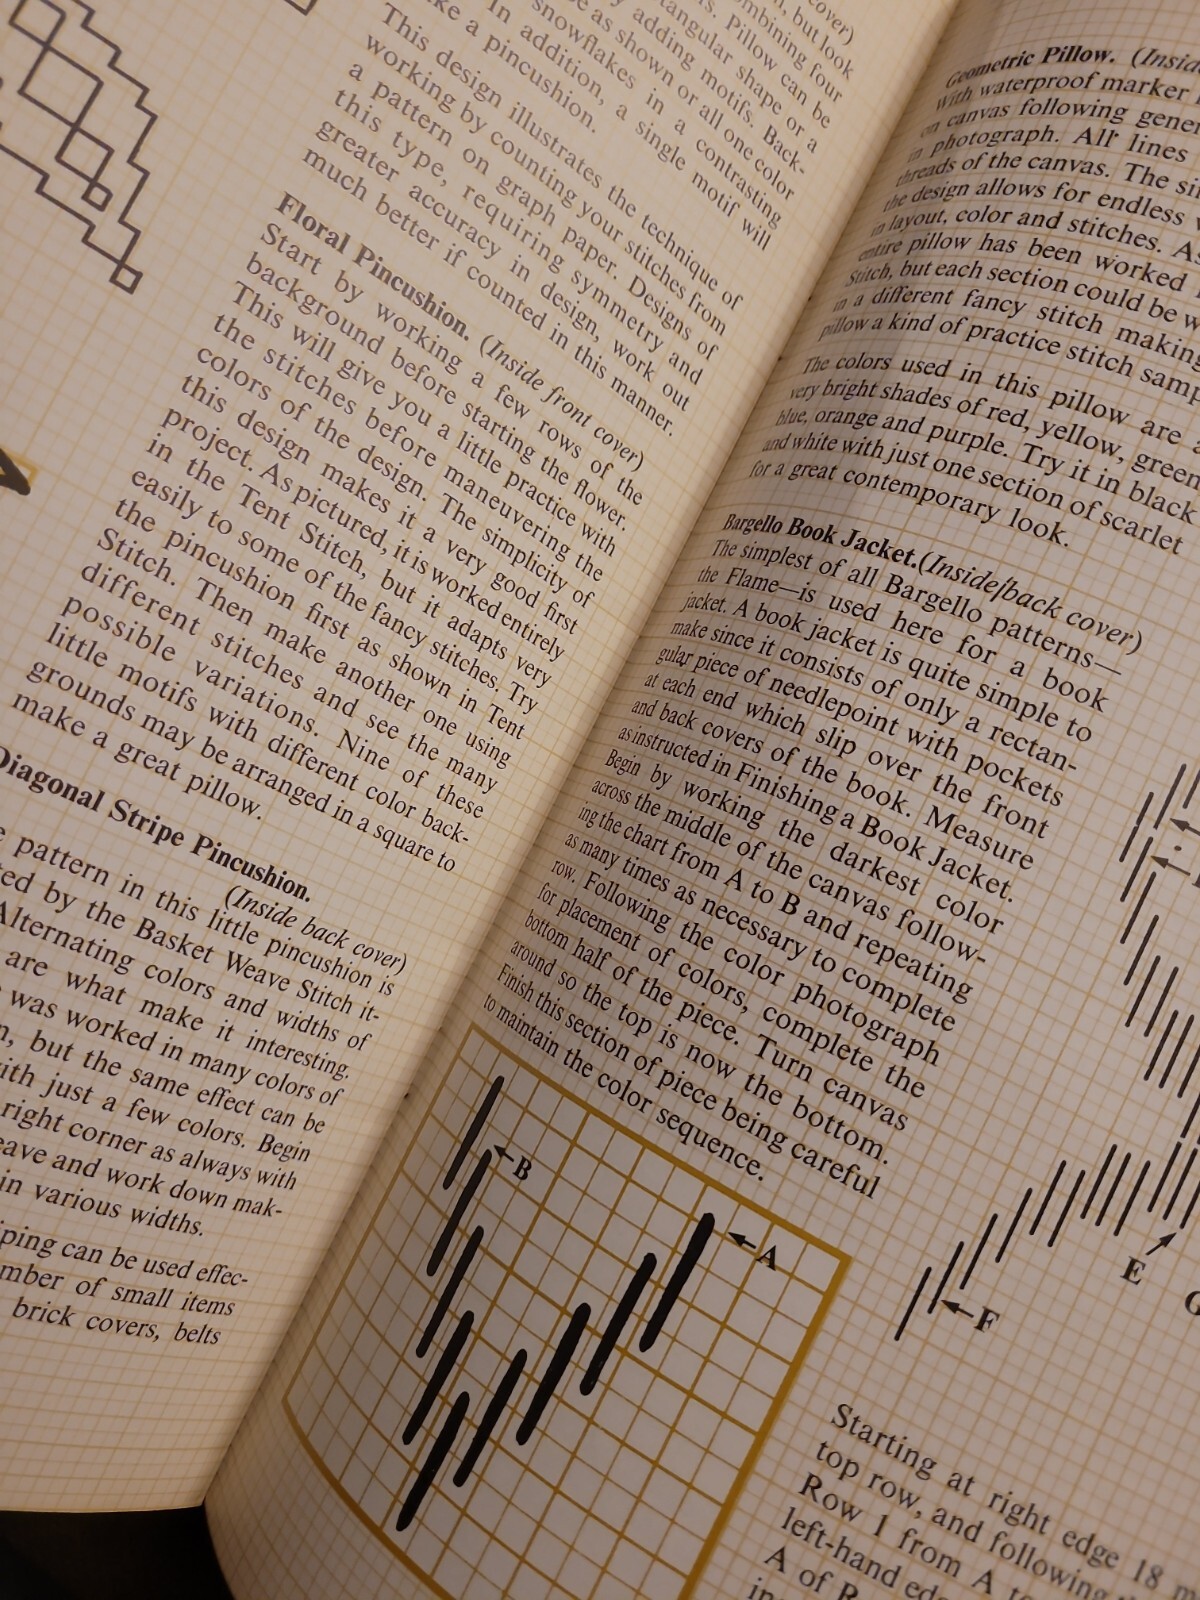 cover)
n, but look
ombining four
s. Pillow can be
tangular shape or a
y adding motifs. Back-
e as shown or all one color
snowflakes in a contrasting
In addition, a single motif will
ke a pincushion.
This design illustrates the technique of
working by counting your stitches from
a pattern on graph paper. Designs of
this type, requiring symmetry and
greater accuracy in design, work out
much better if counted in this manner.
Floral Pincushion. (Inside front cover)
Start by working a few rows of the
background before starting the flower.
This will give you a little practice with
the stitches before maneuvering the
colors of the design. The simplicity of
this design makes it a very good first
project. As pictured, it is worked entirely
in the Tent Stitch, but it adapts very
easily to some of the fancy stitches. Try
the pincushion first as shown in Tent
Stitch. Then make another one using
different stitches and see the many
possible variations. Nine of these
little motifs with different color back-
grounds may be arranged in a square to
make a great pillow.
Diagonal Stripe Pincushion.
(Inside back cover)
e pattern in this little pincushion is
ted by the Basket Weave Stitch it-
Alternating colors and widths of
are what make it interesting.
was worked in many colors of
n, but the same effect can be
ith just a few colors. Begin
right corner as always with
eave and work down mak-
in various widths.
iping can be used effec-
mber of small items
brick covers, belts
Geometric Pillow. (Insid
With waterproof marker
on canvas following gener
in photograph. All lines
threads of the canvas. The si
the design allows for endless
in layout, color and stitches. As
entire pillow has been worked
Stitch, but each section could be w
in a different fancy stitch making
pillow a kind of practice stitch samp
The colors used in this pillow are a
very bright shades of red, yellow, green
blue, orange and purple. Try it in black
and white with just one section of scarlet
for a great contemporary look.
Bargello Book Jacket.(Inside/back cover)
The simplest of all Bargello patterns—
the Flame—is used here for a book
jacket. A book jacket is quite simple to
make since it consists of only a rectan-
gular piece of needlepoint with pockets
at each end which slip over the front
and back covers of the book. Measure
as instructed in Finishing a Book Jacket.
Begin by working the darkest color
across the middle of the canvas follow-
ing the chart from A to B and repeating
as many times as necessary to complete
row. Following the color photograph
for placement of colors, complete the
bottom half of the piece. Turn canvas
around so the top is now the bottom.
Finish this section of piece being careful
to maintain the color sequence.
B
A
E
F
G
Starting at right edge 18 m
top row, and following
Row 1 from A to
left-hand edg
A of R